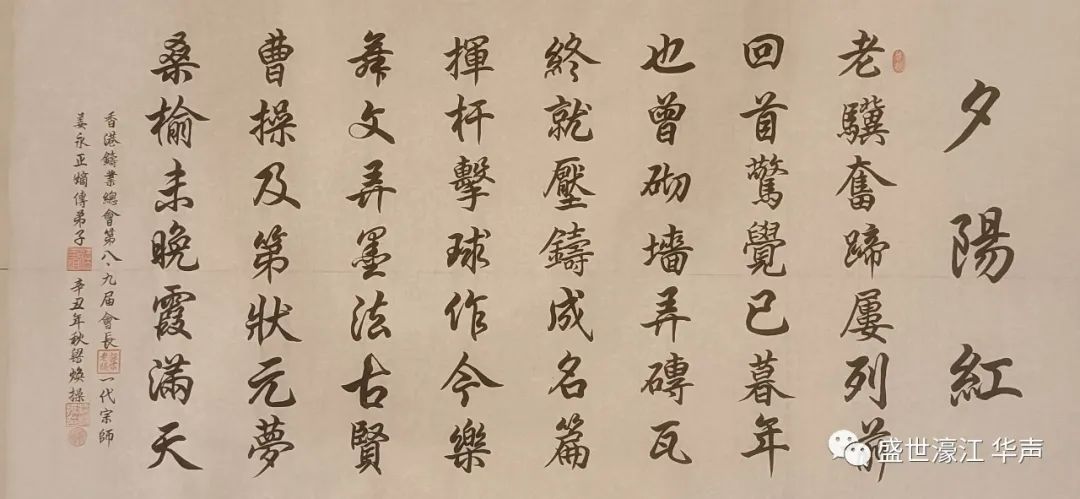 夕陽紅
老驥奮蹄屢列前
回首驚覺已暮年
也曾砌墻弄磚瓦
終就壓鑄成名篇
揮杆擊球作今樂
舞文弄墨法古賢
曹操及第狀元夢
桑榆未晚霞滿天
香港鑄業總會第八·九届會長 一代宗師
姜永正嫡傳弟子 辛丑年秋梁煥操
盛世濠江 华声